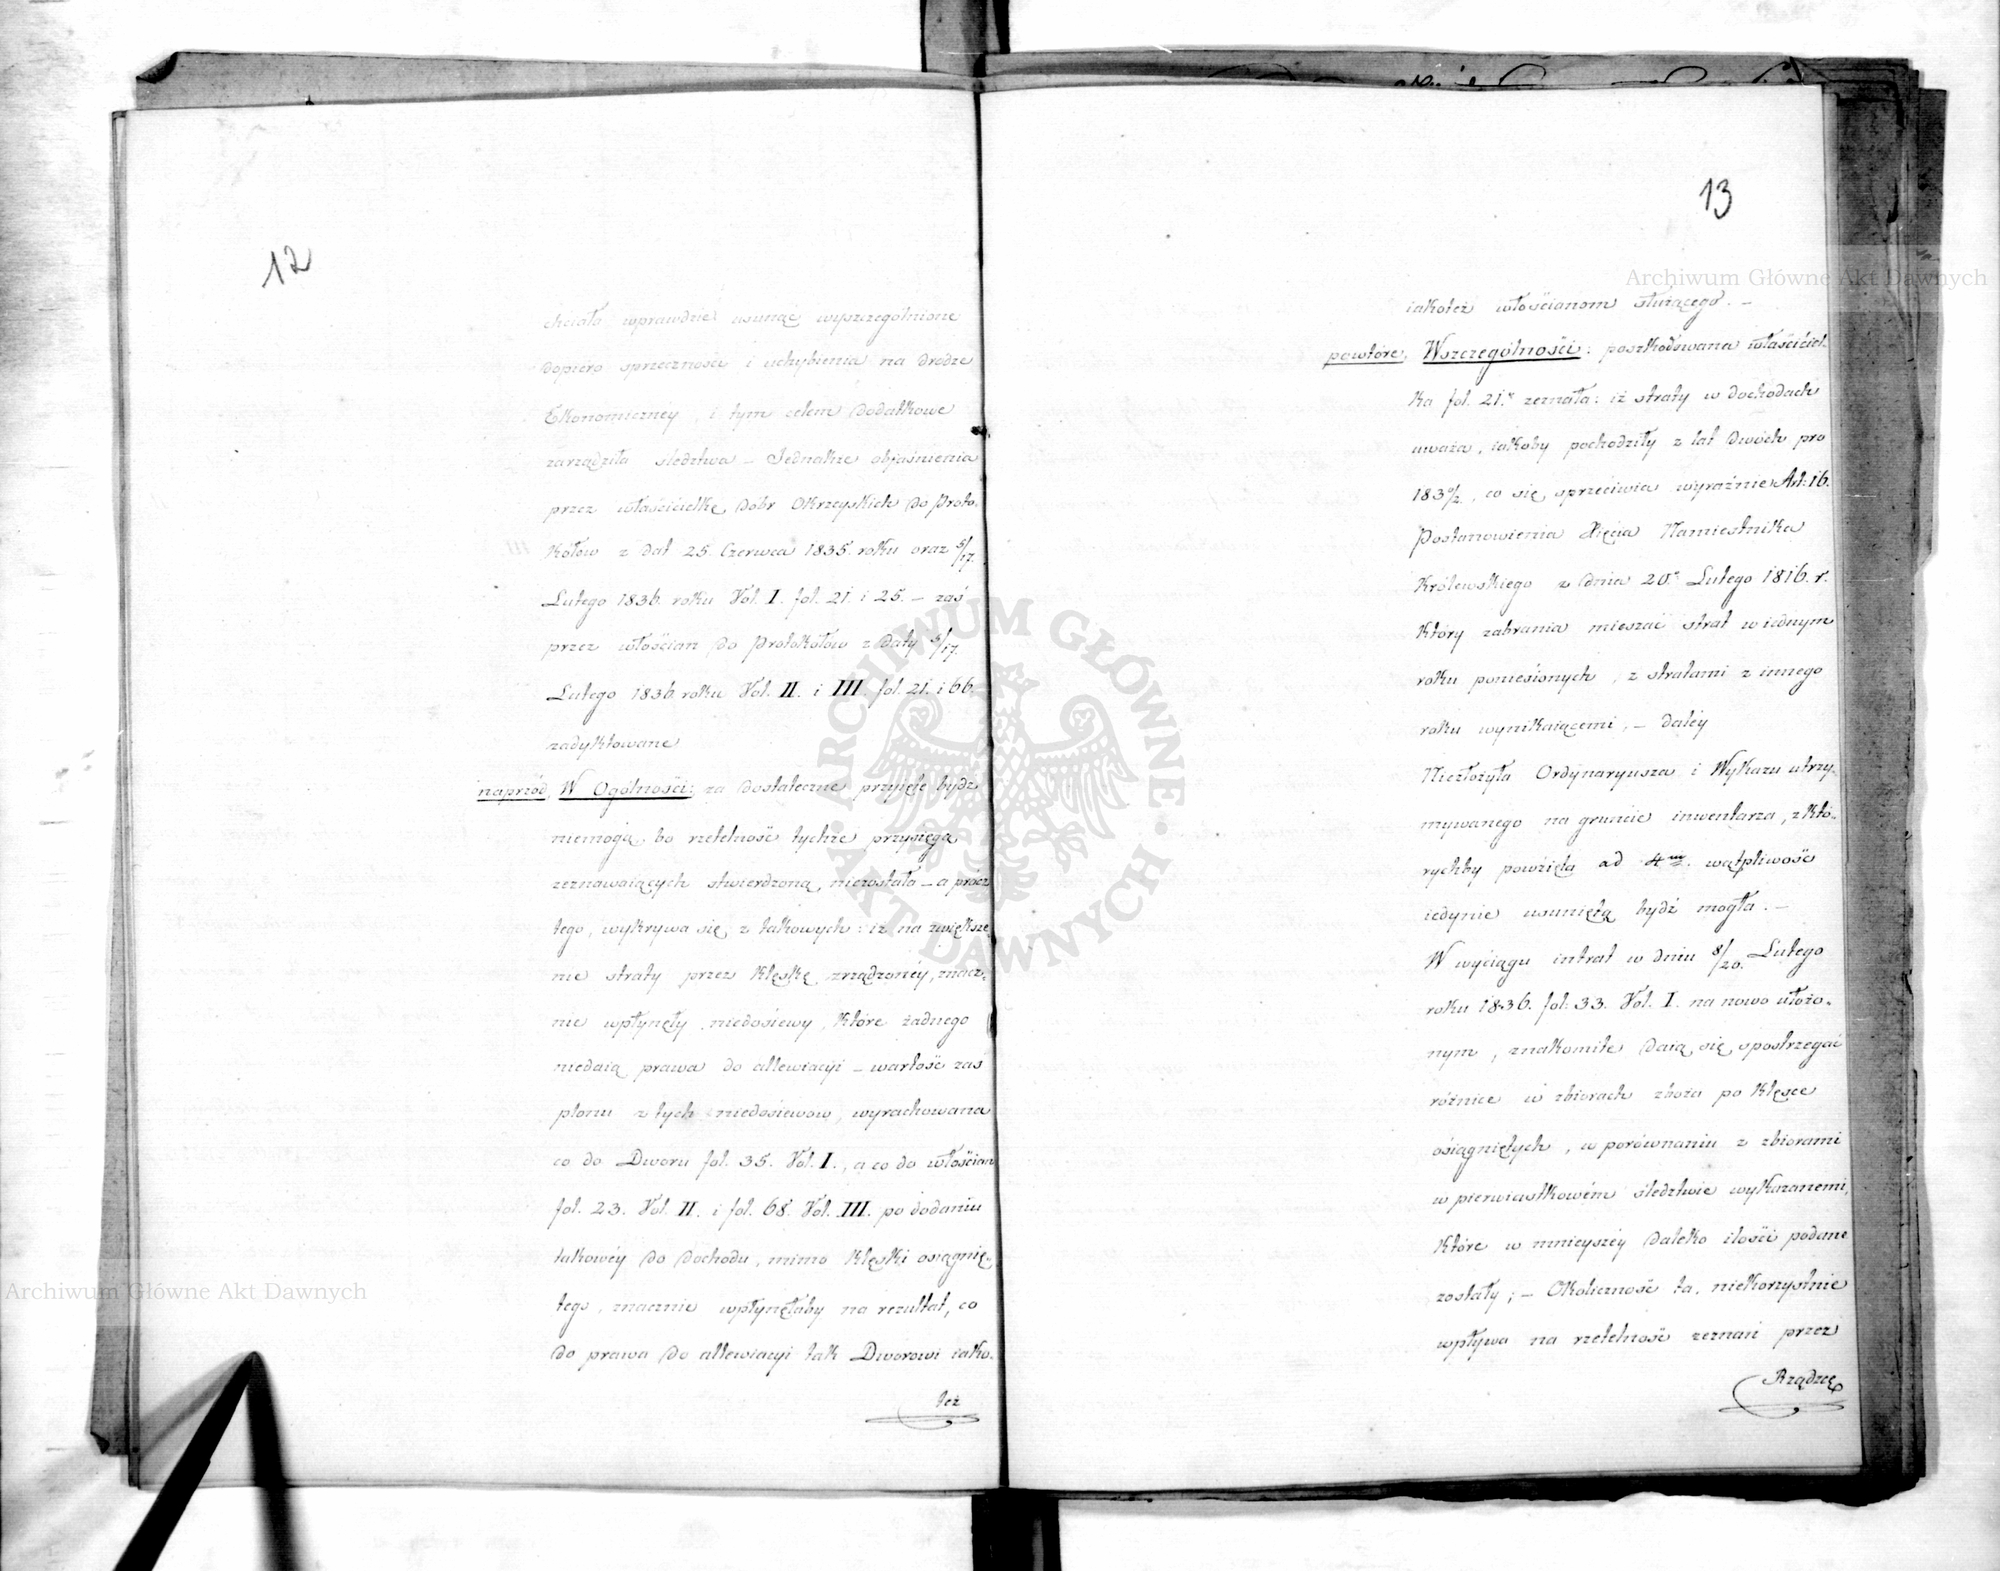 12
chciała wprawdzie usunąć wyszczególnione
dopiero sprzeczności i uchybienia na drodze
Ekonomiczney, i tym celem dodatkowe
zarządziła śledztwa – Jednakże objaśnienia
przez właścicielkę dóbr Okrzeyskich do Proto-
kółów z dat 25. Czerwca 1835. roku oraz 5/17.
Lutego 1836. roku Vol. I. fol. 21. i 25. – zaś
przez włościan do Protokołów z daty 5/17.
Lutego 1836 roku Vol. II. i III fol. 21. i 66.
zadyktowane
naprzód, W Ogólności: za dostateczne przyięte bydź
niemogą, bo rzetelność tychże przysięgą
zeznawaiących stwierdzoną niezostała – a prócz
tego, wykrywa się z takowych: iż na zwiększe
nie straty przez klęskę zrządzoney, znacz-
nie wpłynęły niedosiewy, które żadnego
niedaią prawa do allewiacyi – wartość zaś
plonu z tych niedosiewów, wyrachowana
co do Dworu fol. 35. Vol. I., a co do włościan
fol. 23. Vol. II. i fol. 68. Vol. III. po dodaniu
takowéy do dochodu, mimo klęski osiągnię-
tego, znacznie wpłynęłaby na rezultat, co
do prawa do allewiacyi tak Dworowi iako-
też
13
iakoteż włościanom służącego. –
powtóre, Wszczególności: poszkodowana właściciel-
ka fol. 21. zeznała: iż straty w dochodach
uważa, iakoby pochodziły z lat dwóch pro
1830/2., co się sprzeciwia wyraźnie Art: 16.
Postanowienia Xięcia Namiestnika
Królewskiego z dnia 20. Lutego 1816. r.
który zabrania mieszać strat w iednym
roku poniesionych, z stratami z innego
roku wynikaiącemi, – daléy
Niezłożyła Ordynaryusza i Wykazu utrzy-
mywanego na gruncie inwentarza, z któ-
rychby powzięta ad 4m. wątpliwość
iedynie usuniętą bydź mogła. –
W wyciągu intrat w dniu 8/20. Lutego
roku 1836. fol: 33. Vol. I. na nowo ułożo-
nym, znakomite daią się spostrzegać
różnice w zbiorach zboża po klęsce
osiągniętych, w porównaniu z zbiorami
w pierwiastkowém śledztwie wykazanemi,
które w mnieyszéy daleko ilości podane
zostały; – Okoliczność ta, niekorzystnie
wpływa na rzetelność zeznań przez
Rządzcę
Archiwum Główne Akt Dawnych
ARCHIWUM GŁÓWNE AKT DAWNYCH
Archiwum Główne Akt Dawnych